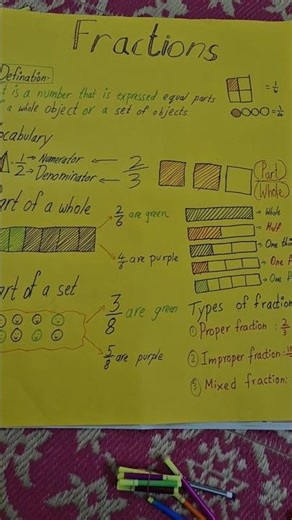 Fractions
Defination:-
t is a number that is expressed equal parts
f a whole object or a set of objects
= 1/4
= 1/4
ocabulary
1 → Numerator
2 → Denominator
2/3
(Part)
(Whole)
art of a whole
2/6 are green
4/6 are purple
→ Whole
→ Half
→ One thi
→ One f
→ One f
art of a set
3/8 are green
5/8 are purple
Types of fraction
① Proper fraction : 2/3
② Improper fraction :
③ Mixed fraction: